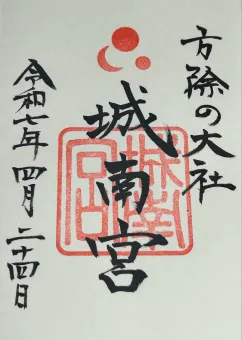 方除の大社
城南宮
城南宮印
令和七年四月二十四日